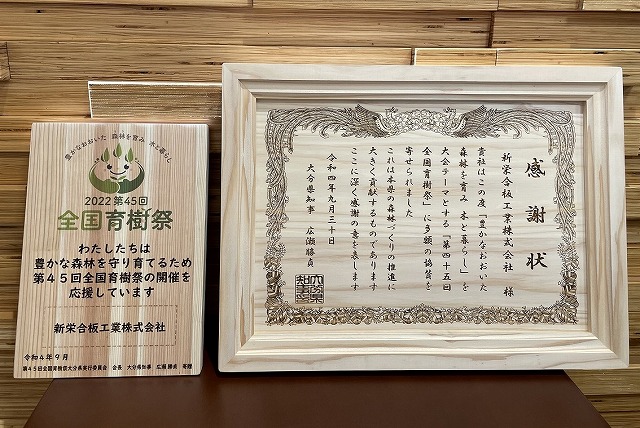 豊かなおおいた 森林を育み 木と暮らし
2022 第45回
全国育樹祭
わたしたちは
豊かな森林を守り育てるため
第４５回全国育樹祭の開催を
応援しています
新栄合板工業株式会社
令和４年９月
第４５回全国育樹祭大分県実行委員会 会長 大分県知事 広瀬 勝貞
感謝状
新栄合板工業株式会社 様
貴社はこの度「豊かなおおいた
森林を育み 木と暮らし」を
大会テーマとする「第四十五回
全国育樹祭」に多額の協賛を
寄せられました
これは本県の森林づくりの推進に
大きく貢献するものであります
ここに深く感謝の意を表します
令和四年九月三十日
大分県知事 広瀬勝貞